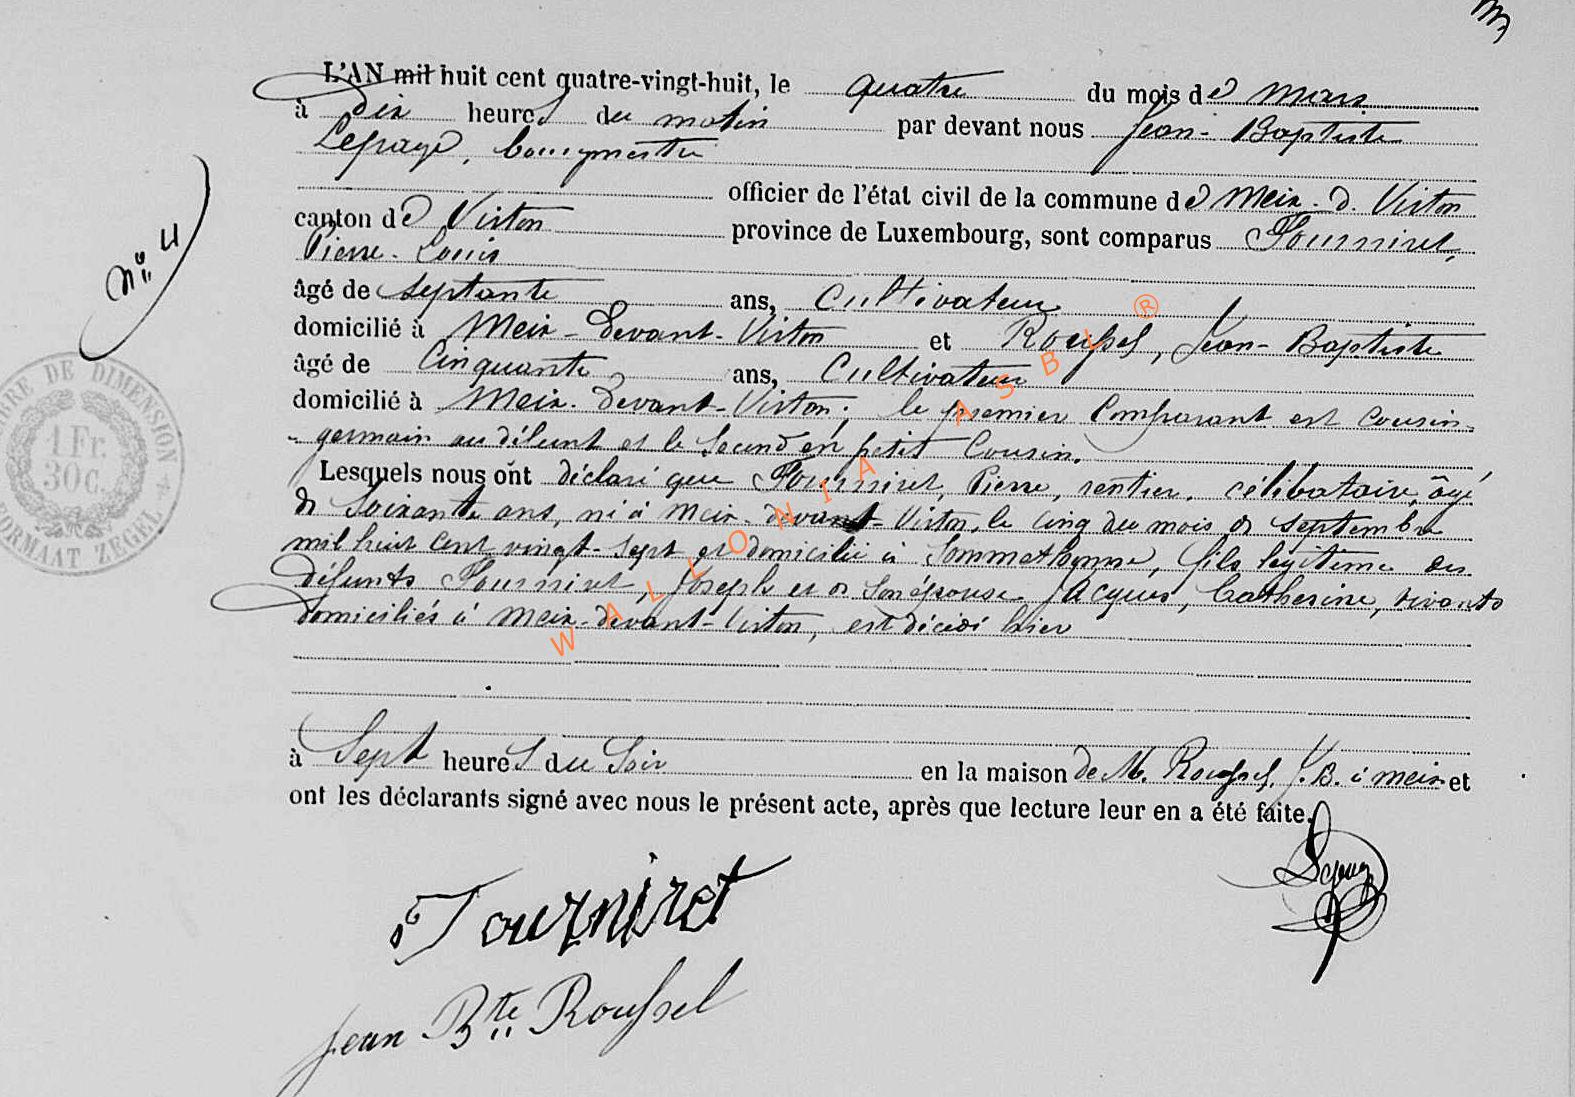 L'AN mil huit cent quatre-vingt-huit, le quatre du mois de mars
à dix heures du matin par devant nous Jean-Baptiste
Lepage, bourgmestre
officier de l'état civil de la commune de Meix-d. Virton
canton de Virton province de Luxembourg, sont comparus Fourniret,
Pierre-Louis
âgé de septante ans, Cultivateur
domicilié à Meix-devant-Virton et Roussel, Jean-Baptiste
âgé de Cinquante ans, Cultivateur
domicilié à Meix-devant-Virton; le premier Comparant est cousin-
germain au défunt et le second en petit Cousin.
Lesquels nous ont déclaré que Fourniret, Pierre, rentier, célibataire, âgé
de Soixante ans, né à Meix-devant-Virton, le cinq du mois de septembre
mil huit cent vingt-sept et domicilié à Sommethonne, fils légitime des
défunts Fourniret, Joseph et de son épouse Jacques, Catherine, vivants
domiciliés à Meix-devant-Virton, est décédé hier
à Sept heures du Soir en la maison de M. Roussel, J.B. à Meix et
ont les déclarants signé avec nous le présent acte, après que lecture leur en a été faite.
Fourniret
Jean Bte Roussel
N° 4
TIMBRE DE DIMENSION
1 Fr.
30c.
FORMAAT ZEGEL
WALLONIA ASBL ®